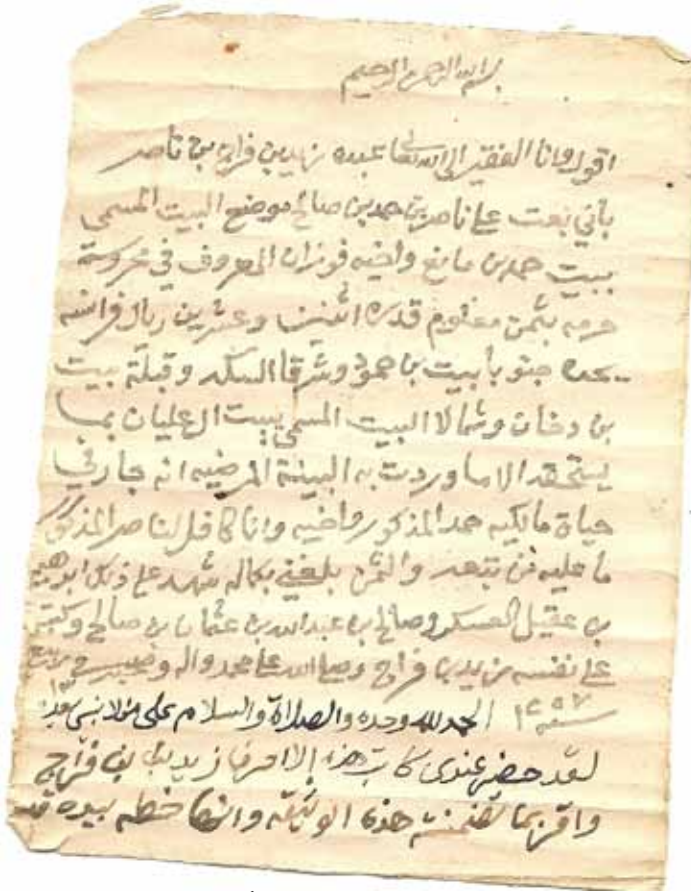 بسم الله الرحمن الرحيم
اقول وانا الفقير الى الله تعالى عبده زيد بن فراج بن ناصر
باني بعت على ناصر بن حمد بن صالح موضع البيت المسمى
ببيت حمد بن مانع واخيه فوزان المعروف في محروسة
حرمه بثمن معلوم قدره اثنين وعشرين ريال فرانسه
يحده جنوبا بيت بن حمود وشرقا السكه وقبلة بيت
بن دخان وشمالا البيت المسمى ببيت ال عليان بما
يستحقه الاما وردت به البينة المرضيه انه جار في
حياة مالكيه حمد المذكور واخيه وانا كافل لناصر المذكور
ما عليه من تبعه والثمن بلغني بكماله شهد على ذلك ابراهيم
بن عقيل العسكر وصالح بن عبدالله بن عثمان بن صالح وكتبه
على نفسه زيد بن فراج وصلى الله على محمد واله وصحبه
سنة ١٢٥٧ الحمد لله وحده والصلاة والسلام على من لا نبي بعده
لقد حضر عندي كاتب هذه الاحرف زيد بن فراج
واقر بما تضمنته هذه الوثيقه وانها خطه بيده